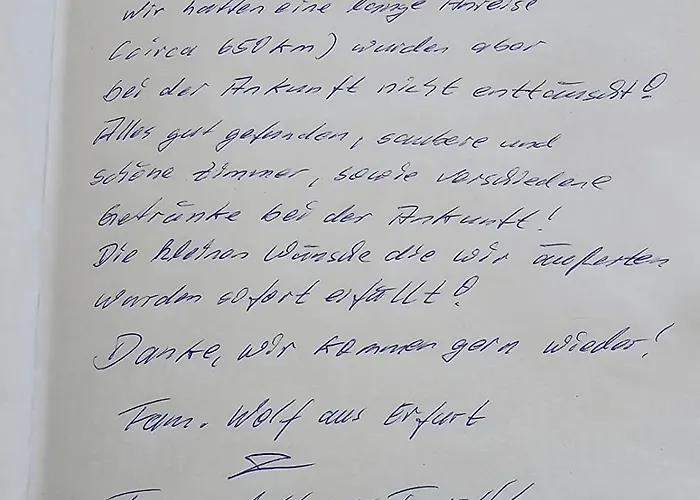 wir hatten eine lange Anreise
(circa 650km) wurden aber
bei der Ankunft nicht enttäuscht!
Alles gut gefunden, saubere und
schöne Zimmer, sowie verschiedene
Getränke bei der Ankunft!
Die kleinen Wünsche die wir äußerten
wurden sofort erfüllt!
Danke, wir kommen gern wieder!
Fam. Wolf aus Erfurt